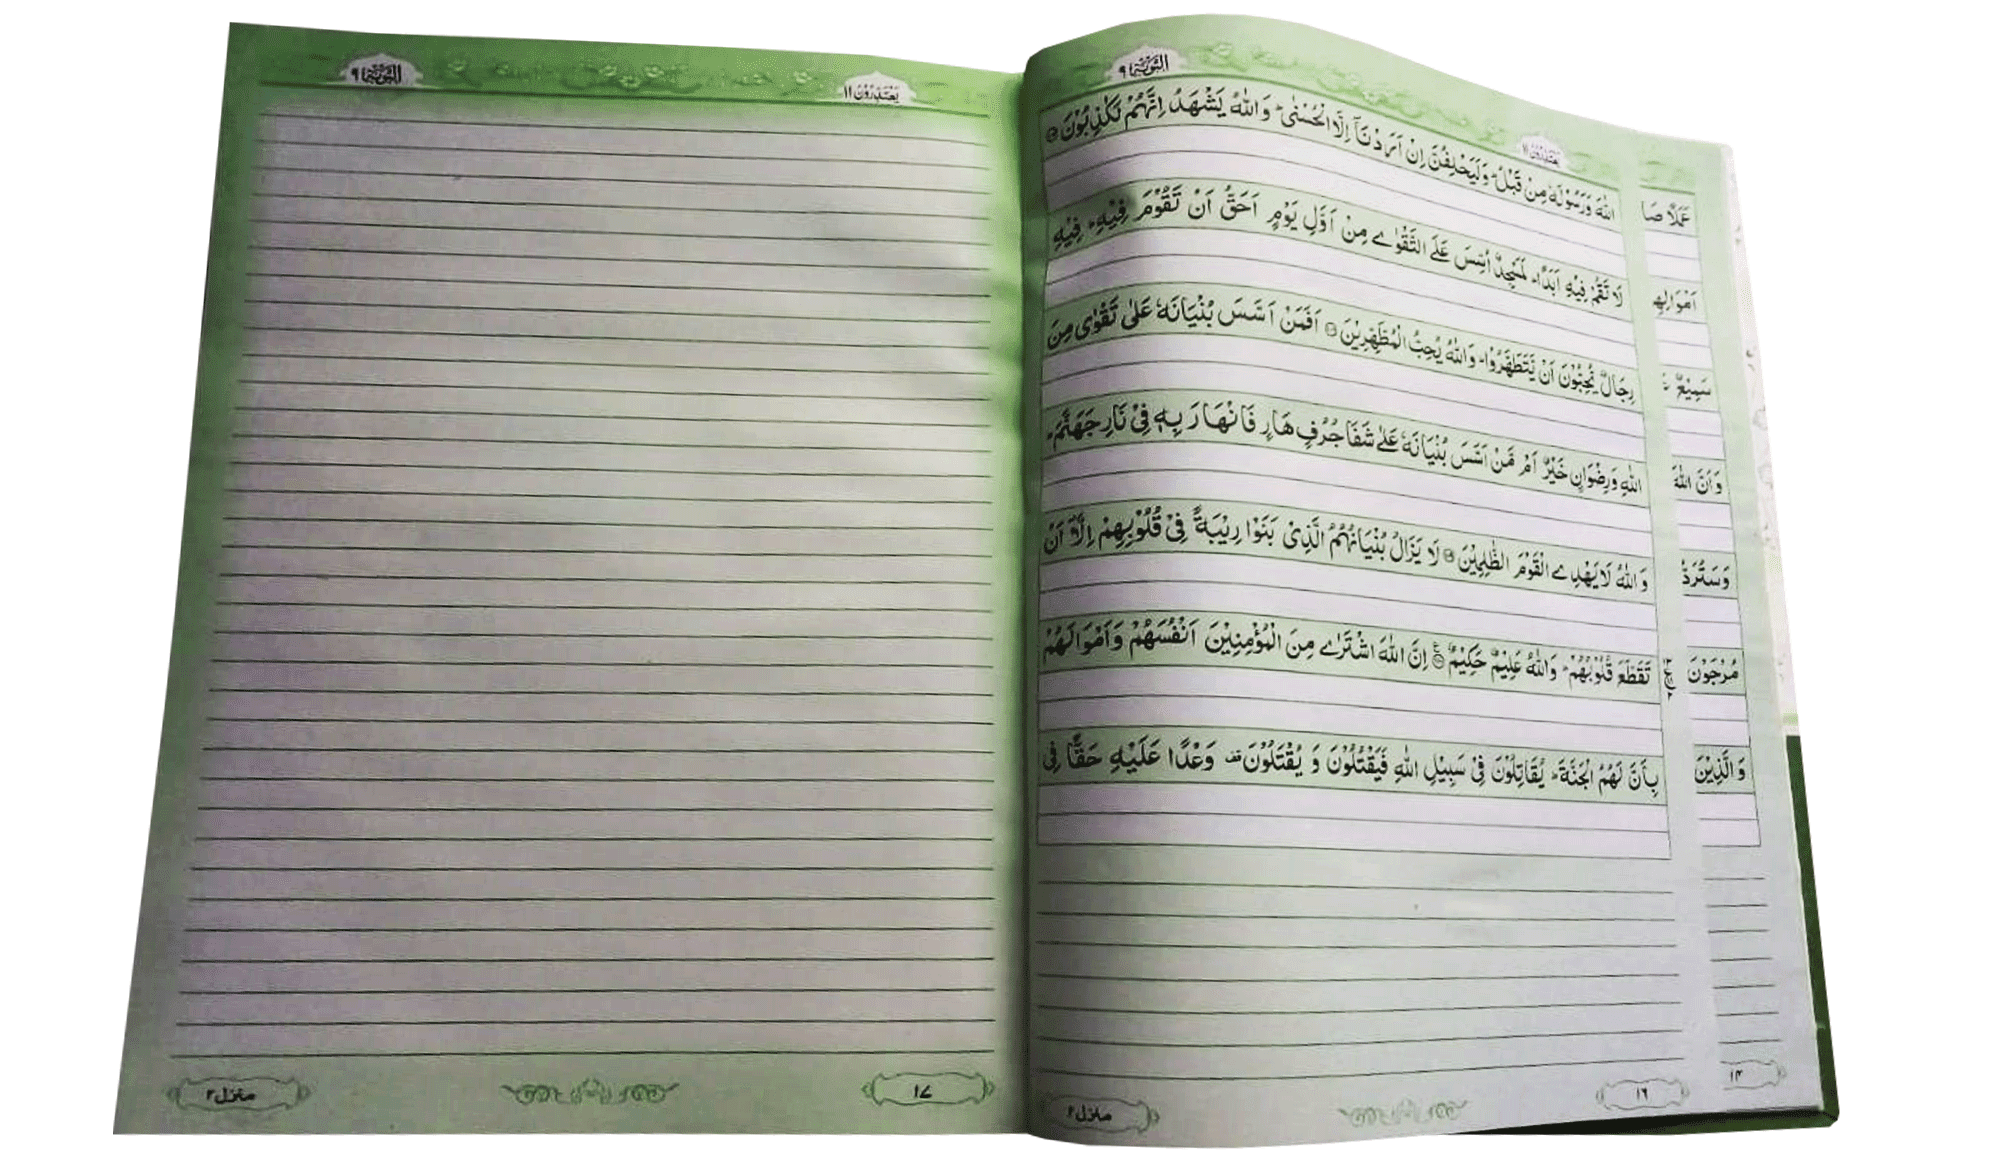 التوبة ٩
يعتذرون ١١
اللّٰهَ وَرَسُوْلَهٗ مِنْ قَبْلُ ؕ وَلَيَحْلِفُنَّ اِنْ اَرَدْنَاۤ اِلَّا الْحُسْنٰى ؕ وَاللّٰهُ يَشْهَدُ اِنَّهُمْ لَكٰذِبُوْنَ
لَا تَقُمْ فِيْهِ اَبَدًا ؕ لَمَسْجِدٌ اُسِّسَ عَلَى التَّقْوٰى مِنْ اَوَّلِ يَوْمٍ اَحَقُّ اَنْ تَقُوْمَ فِيْهِ ؕ فِيْهِ
رِجَالٌ يُّحِبُّوْنَ اَنْ يَّتَطَهَّرُوْا ؕ وَاللّٰهُ يُحِبُّ الْمُطَّهِّرِيْنَ اَفَمَنْ اَسَّسَ بُنْيَانَهٗ عَلٰى تَقْوٰى مِنَ
اللّٰهِ وَرِضْوَانٍ خَيْرٌ اَمْ مَّنْ اَسَّسَ بُنْيَانَهٗ عَلٰى شَفَا جُرُفٍ هَارٍ فَانْهَارَ بِهٖ فِيْ نَارِ جَهَنَّمَ ؕ
وَاللّٰهُ لَا يَهْدِى الْقَوْمَ الظّٰلِمِيْنَ لَا يَزَالُ بُنْيَانُهُمُ الَّذِيْ بَنَوْا رِيْبَةً فِيْ قُلُوْبِهِمْ اِلَّاۤ اَنْ
تَقَطَّعَ قُلُوْبُهُمْ ؕ وَاللّٰهُ عَلِيْمٌ حَكِيْمٌ اِنَّ اللّٰهَ اشْتَرٰى مِنَ الْمُؤْمِنِيْنَ اَنْفُسَهُمْ وَاَمْوَالَهُمْ
بِاَنَّ لَهُمُ الْجَنَّةَ ؕ يُقَاتِلُوْنَ فِيْ سَبِيْلِ اللّٰهِ فَيَقْتُلُوْنَ وَ يُقْتَلُوْنَ وَعْدًا عَلَيْهِ حَقًّا فِي
١٦
منزل ٢
عَمَلًا صَا
اَمْوَالِهِ
سَمِيْعٌ
وَاَنَّ اللّٰهَ
وَسَتُرَدُّ
مُرْجَوْنَ
وَالَّذِيْنَ
١٤
يعتذرون ١١
التوبة ٩
١٧
منزل ٢